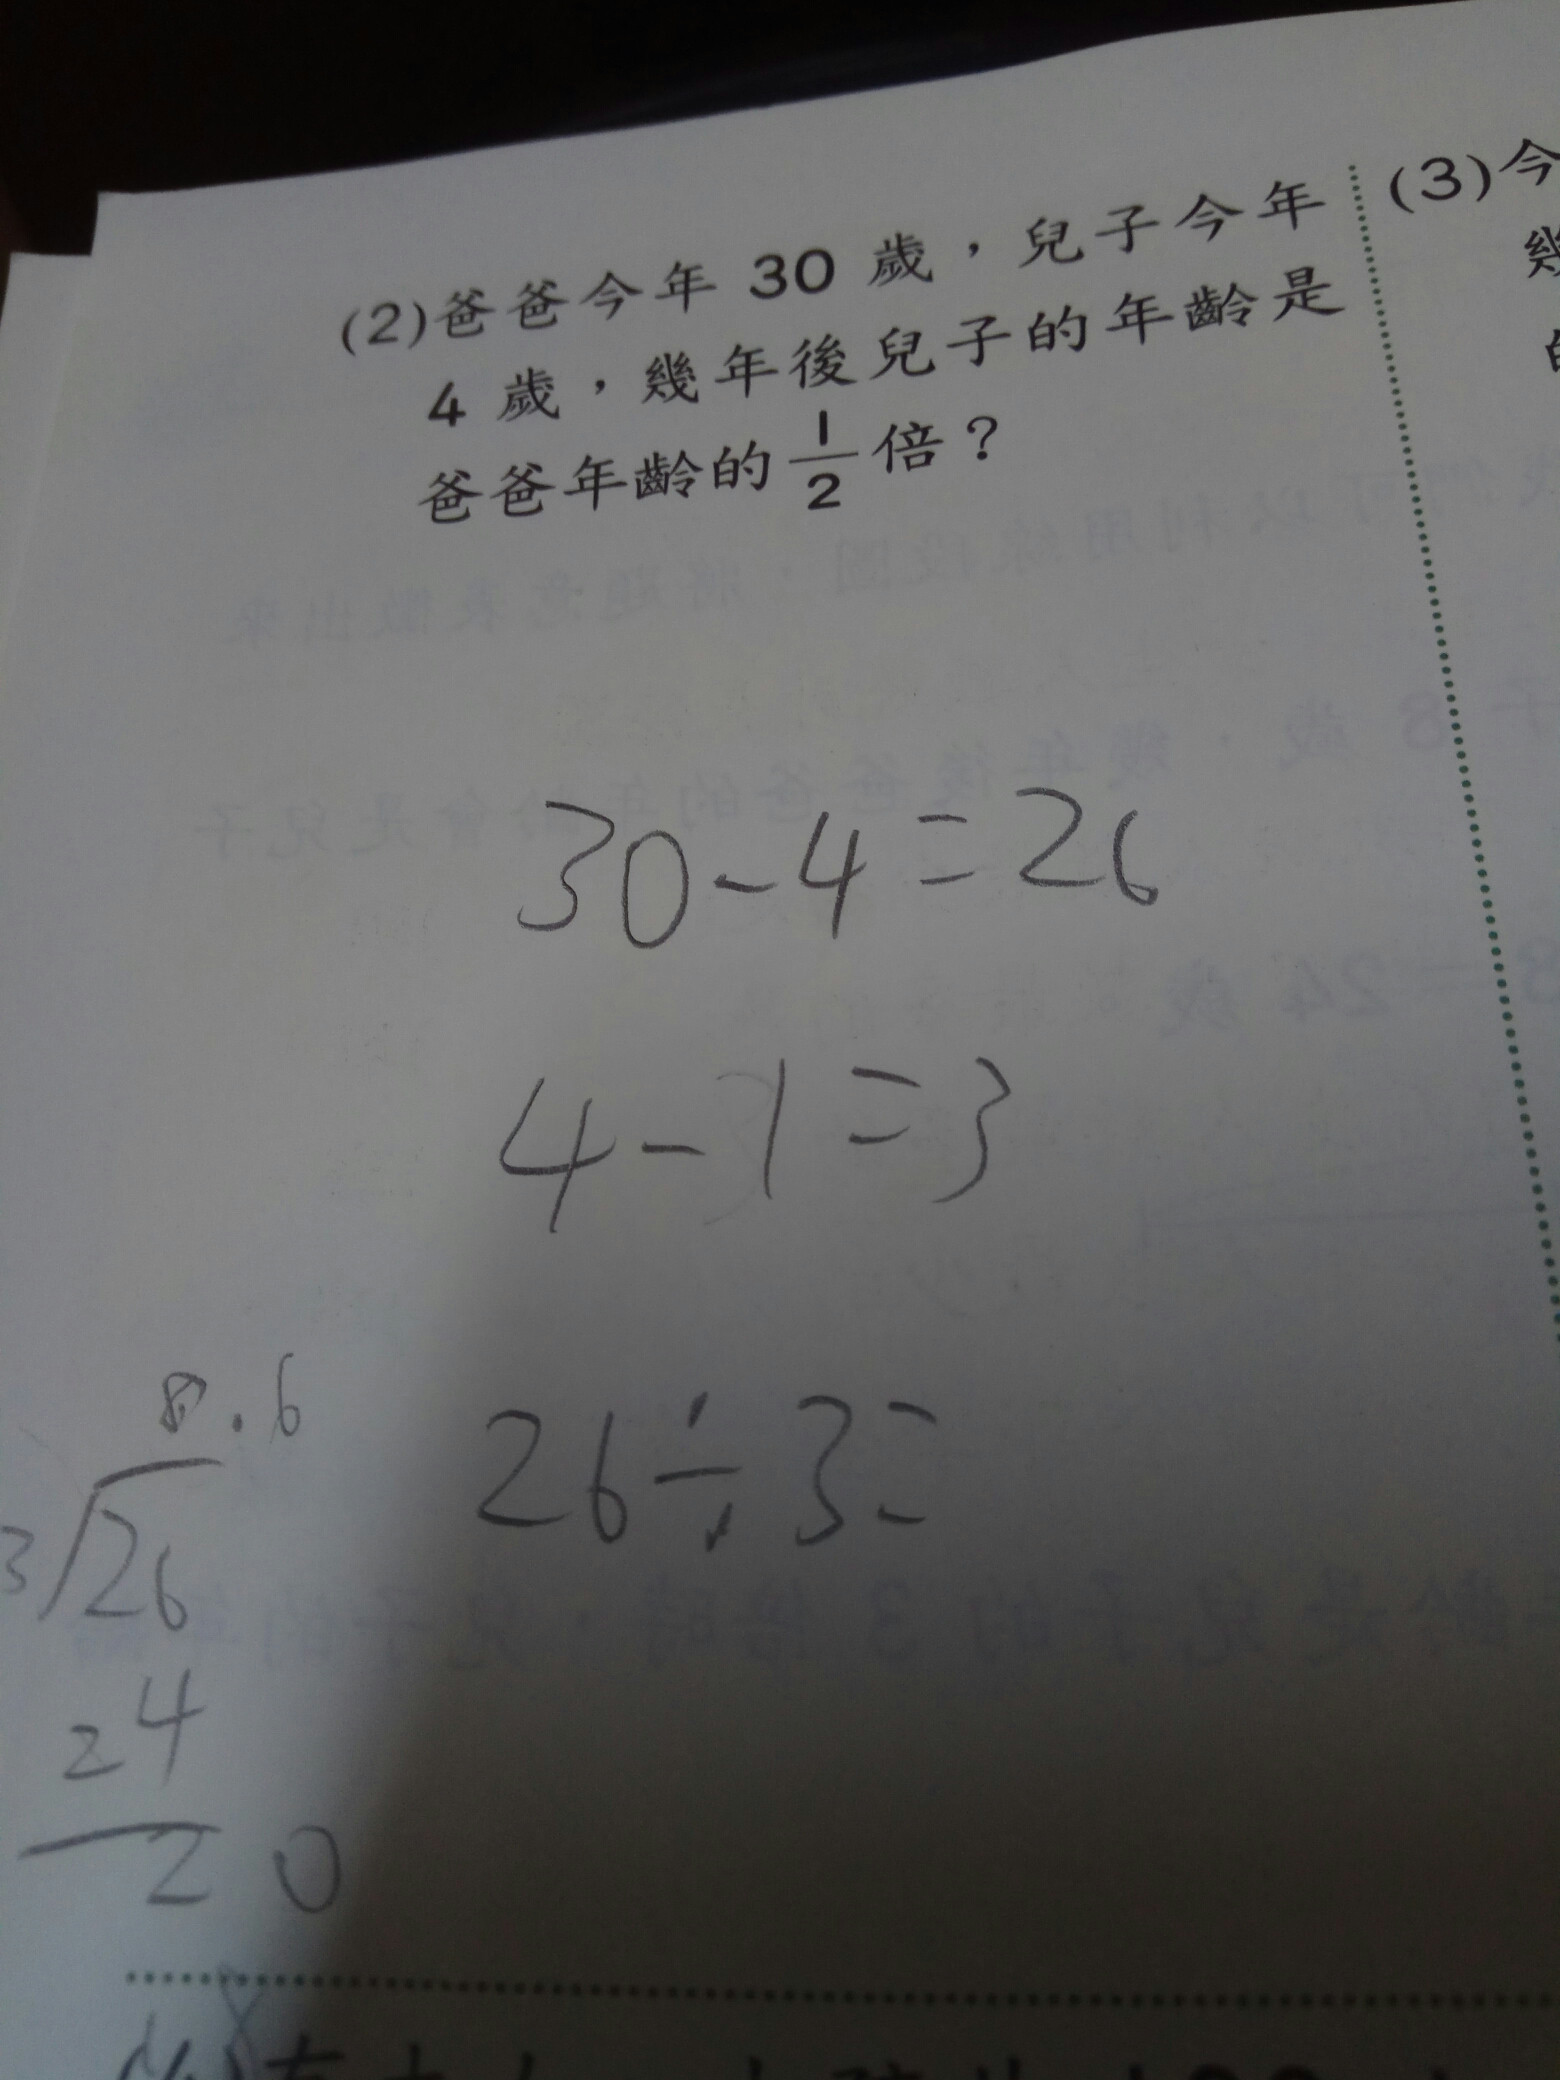 (2)爸爸今年 30 歲，兒子今年
4 歲，幾年後兒子的年齡是
爸爸年齡的 1/2 倍？
(3)今
幾
30-4=26
4-1=3
26÷3=
8.6
3 26
24
20